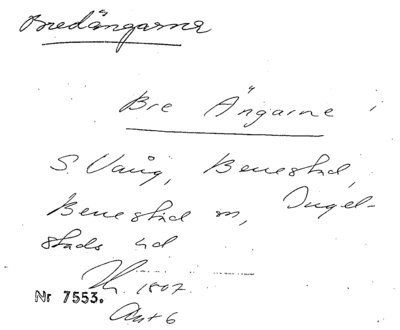 Bredängarne
Bre Ängarne
S. Vång, Benestad,
Benestad sn, Ingel-
stads hd
1807.
Nr 7553.
Akt 6